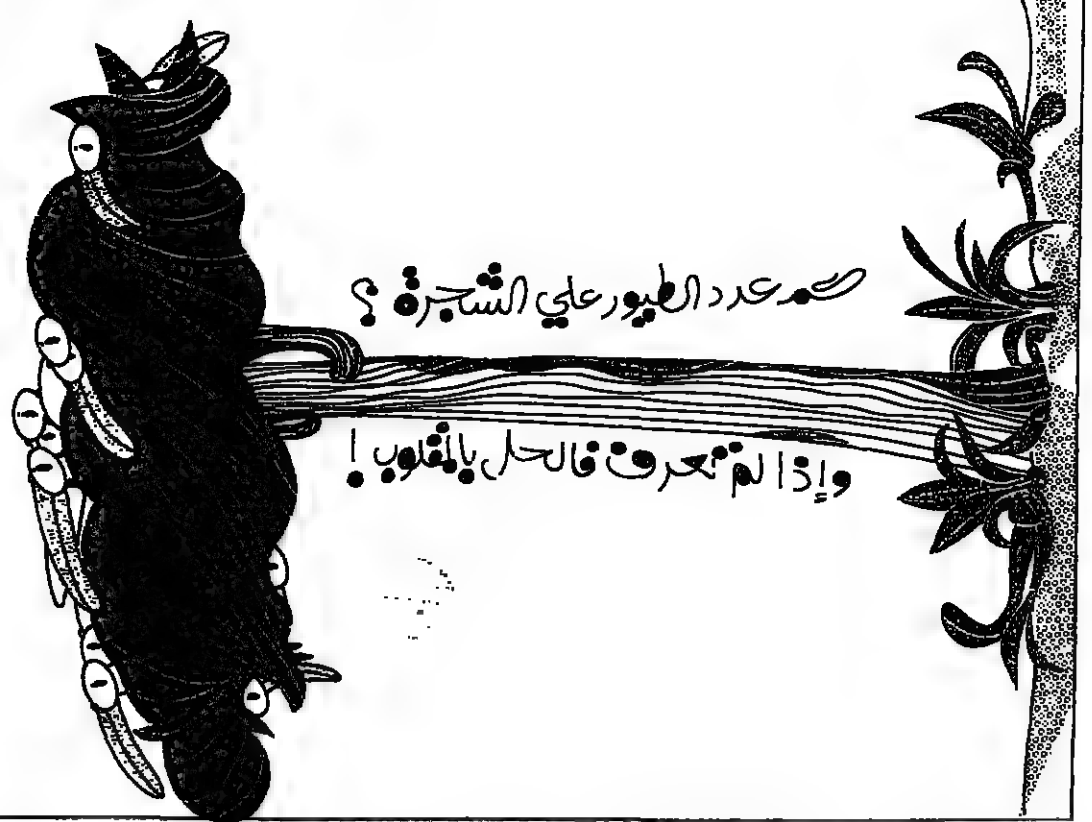 كم عدد الطيور علي الشجرة ؟
وإذا لم تعرف فالحل بالمقلوب !